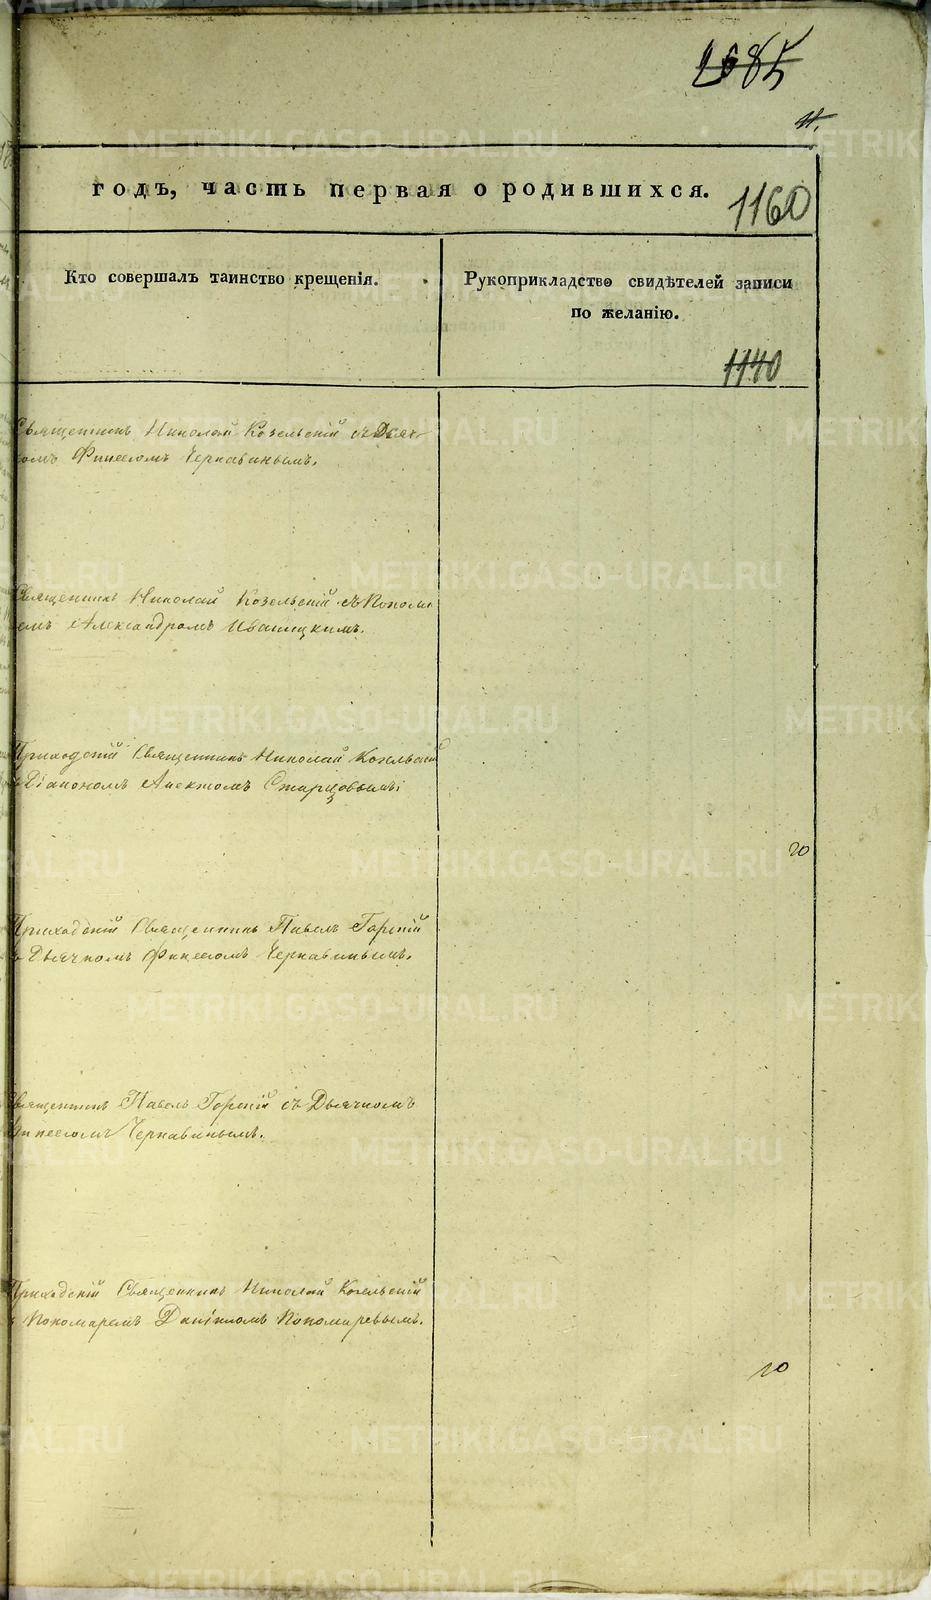 2685
11.
годъ, часть первая о родившихся.
1160
Кто совершалъ таинство крещенія.
Рукоприкладство свидѣтелей записи
по желанію.
1140
Священникъ Николай Козельскій съ Дьяч-
комъ Финеесомъ Чернавинымъ.
Священникъ Николай Козельскій съ Понома
емъ Александромъ Иваницкимъ.
Приходскій Священникъ Николай Козельскій
Діакономъ Старцовымъ
20
Приходскій Священникъ Павелъ Горскій
Дьячкомъ Финеесомъ Чернавинымъ.
Священникъ Павелъ Горскій съ Дьячкомъ
Финеесомъ Чернавинымъ.
Приходскій Священникъ Николай Козельскій
Пономаремъ Даніиломъ Пономаревымъ.
20
METRIKI.GASO-URAL.RU